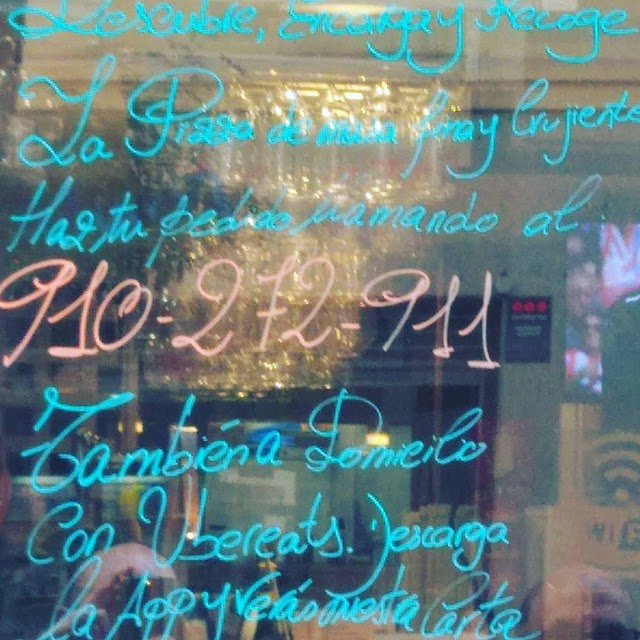 Descubre, Encarga y Recoge
La Pizza de masa fina y Crujiente
Haz tu pedido llamando al
910-272-911
También a Domicilio
Con Ubereats. Descarga
la App y verás nuestra Carta